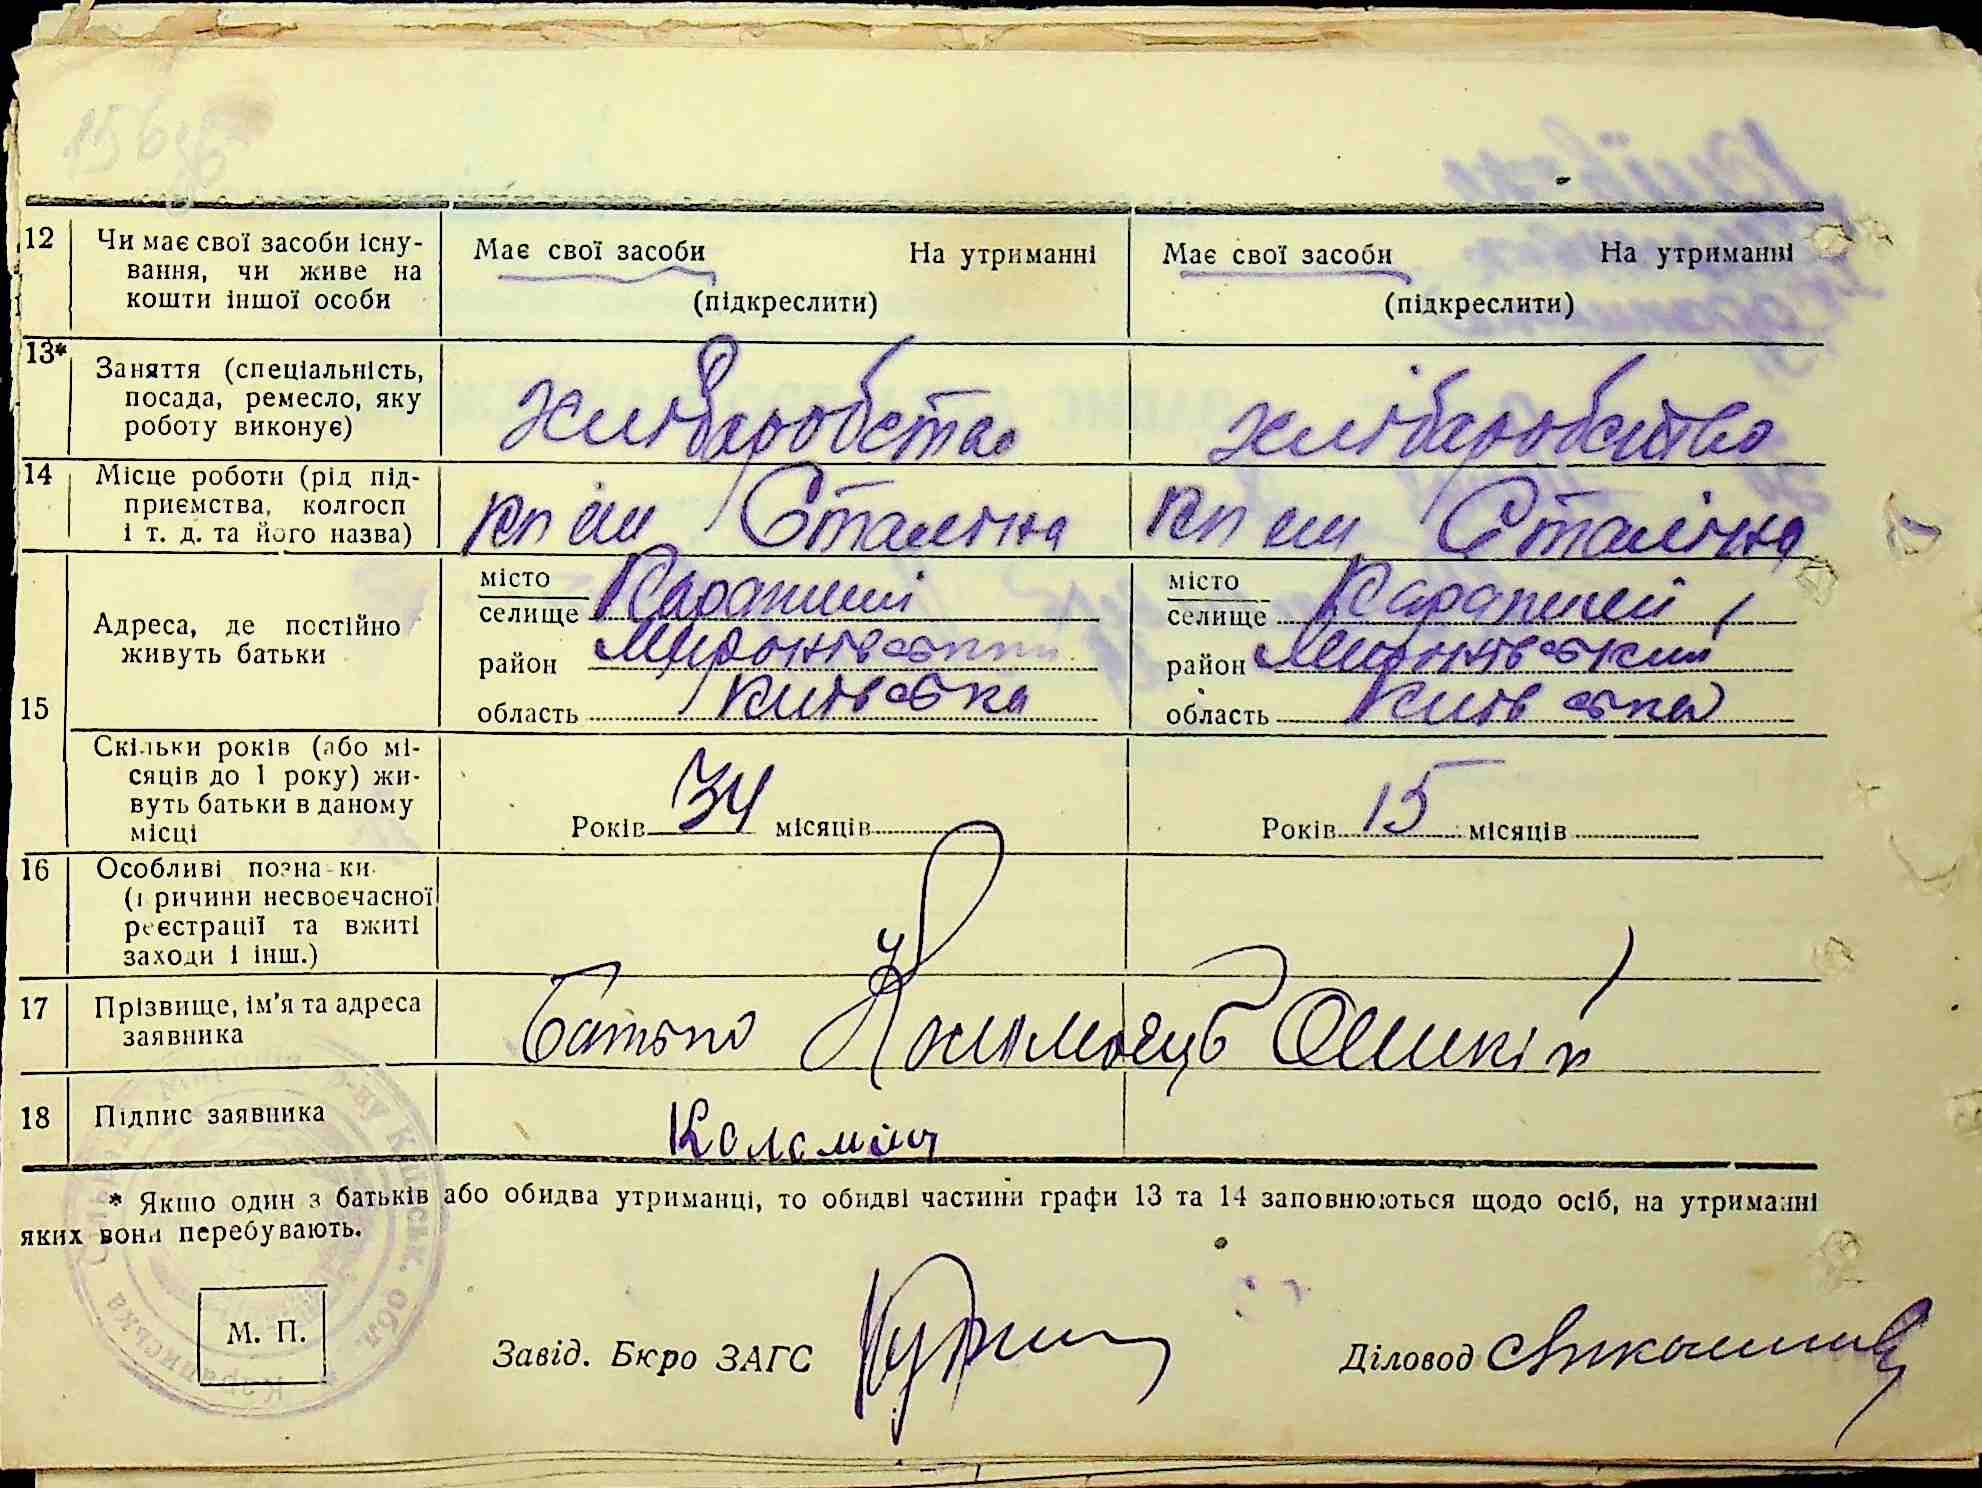 156
12 Чи має свої засоби існу-
вання, чи живе на
кошти іншої особи
Має свої засоби На утриманні
(підкреслити)
Має свої засоби На утриманні
(підкреслити)
13* Заняття (спеціальність,
посада, ремесло, яку
роботу виконує)
хліборобство
хліборобство
14 Місце роботи (рід під-
приємства, колгосп
і т. д. та його назва)
кп ім Сталіна
кп ім Сталіна
15 Адреса, де постійно
живуть батьки
місто
селище Карапиші
район Миронівський
область Київська
місто
селище Карапиші
район Миронівський
область Київська
Скільки років (або мі-
сяців до 1 року) жи-
вуть батьки в даному
місці
Років 34 місяців
Років 15 місяців
16 Особливі познаки
(причини несвоєчасної
реєстрації та вжиті
заходи і інш.)
17 Прізвище, ім'я та адреса
заявника
Батько Коломієць
18 Підпис заявника
Коломієц
* Якщо один з батьків або обидва утриманці, то обидві частини графи 13 та 14 заповнюються щодо осіб, на утриманні
яких вони перебувають.
М. П.
Завід. Бюро ЗАГС
Діловод